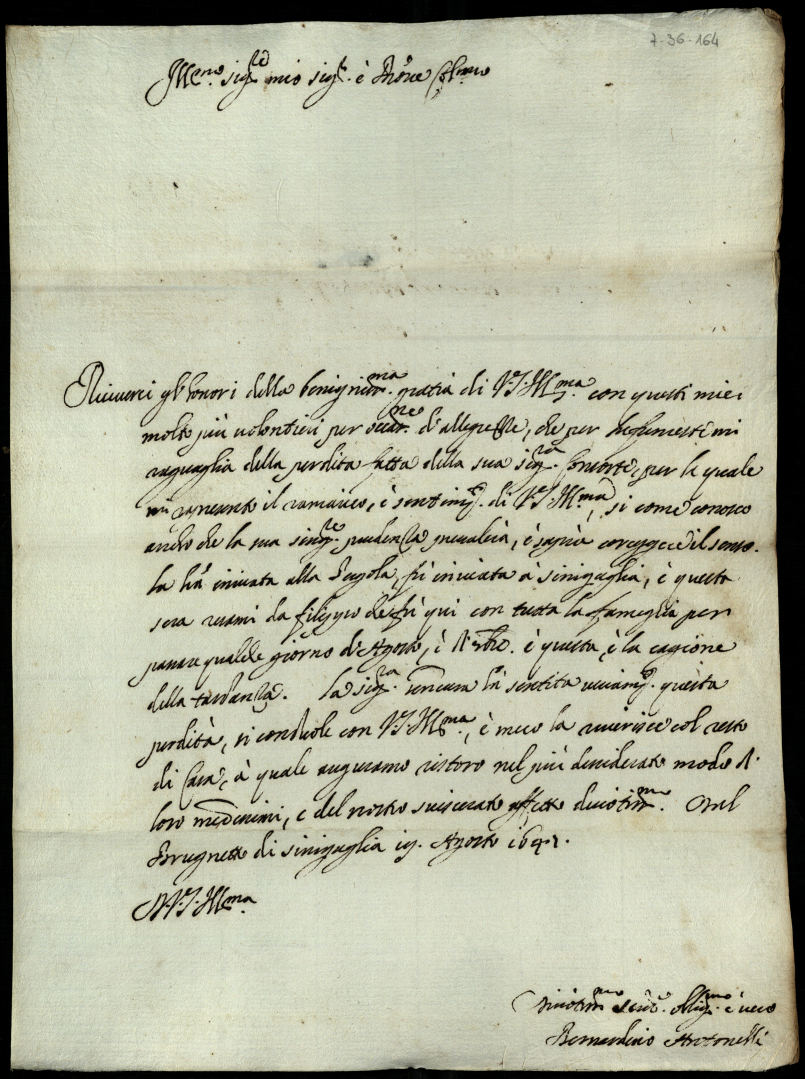 7-36-164
Ill.mo sig.re mio sig.r è Prone Col.mo
Riceverei gl'honori della benignis.ma gratia di V.S. Ill.ma con questi miei
molto più volontieri per occas.ne d'allegrezze, che per
raguaglia della perdita fatta della sua sig.ra Consorte, per la quale
mi il ramarico, è sentim.to di V.S. Ill.ma, si come conosco
anche che la sua sing.re prudenza prevalerà, è saprà correggere il senso.
la l'ha inviata alla Pergola, fù inviata à Sinigaglia, è questa
sera resami da che fù qui con tutta la fameglia per
passare qualche giorno di Agosto, è 7mbre. è questa, è la cagione
della tardanza. La sig.ra hà sentita questa
perdità, si conduole con V.S. Ill.ma, è meco la riverisce col resto
di Casa, à quale auguriamo ristoro nel più desiderato modo
loro medesimi, e del nostro sviscerato affetto divotiss.mo. Dal
Brugnetto di Sinigaglia 19. Agosto 1641.
D.V.S. Ill.ma
Divotiss.mo serv.re oblig.mo è vero
Bernardino Antonelli